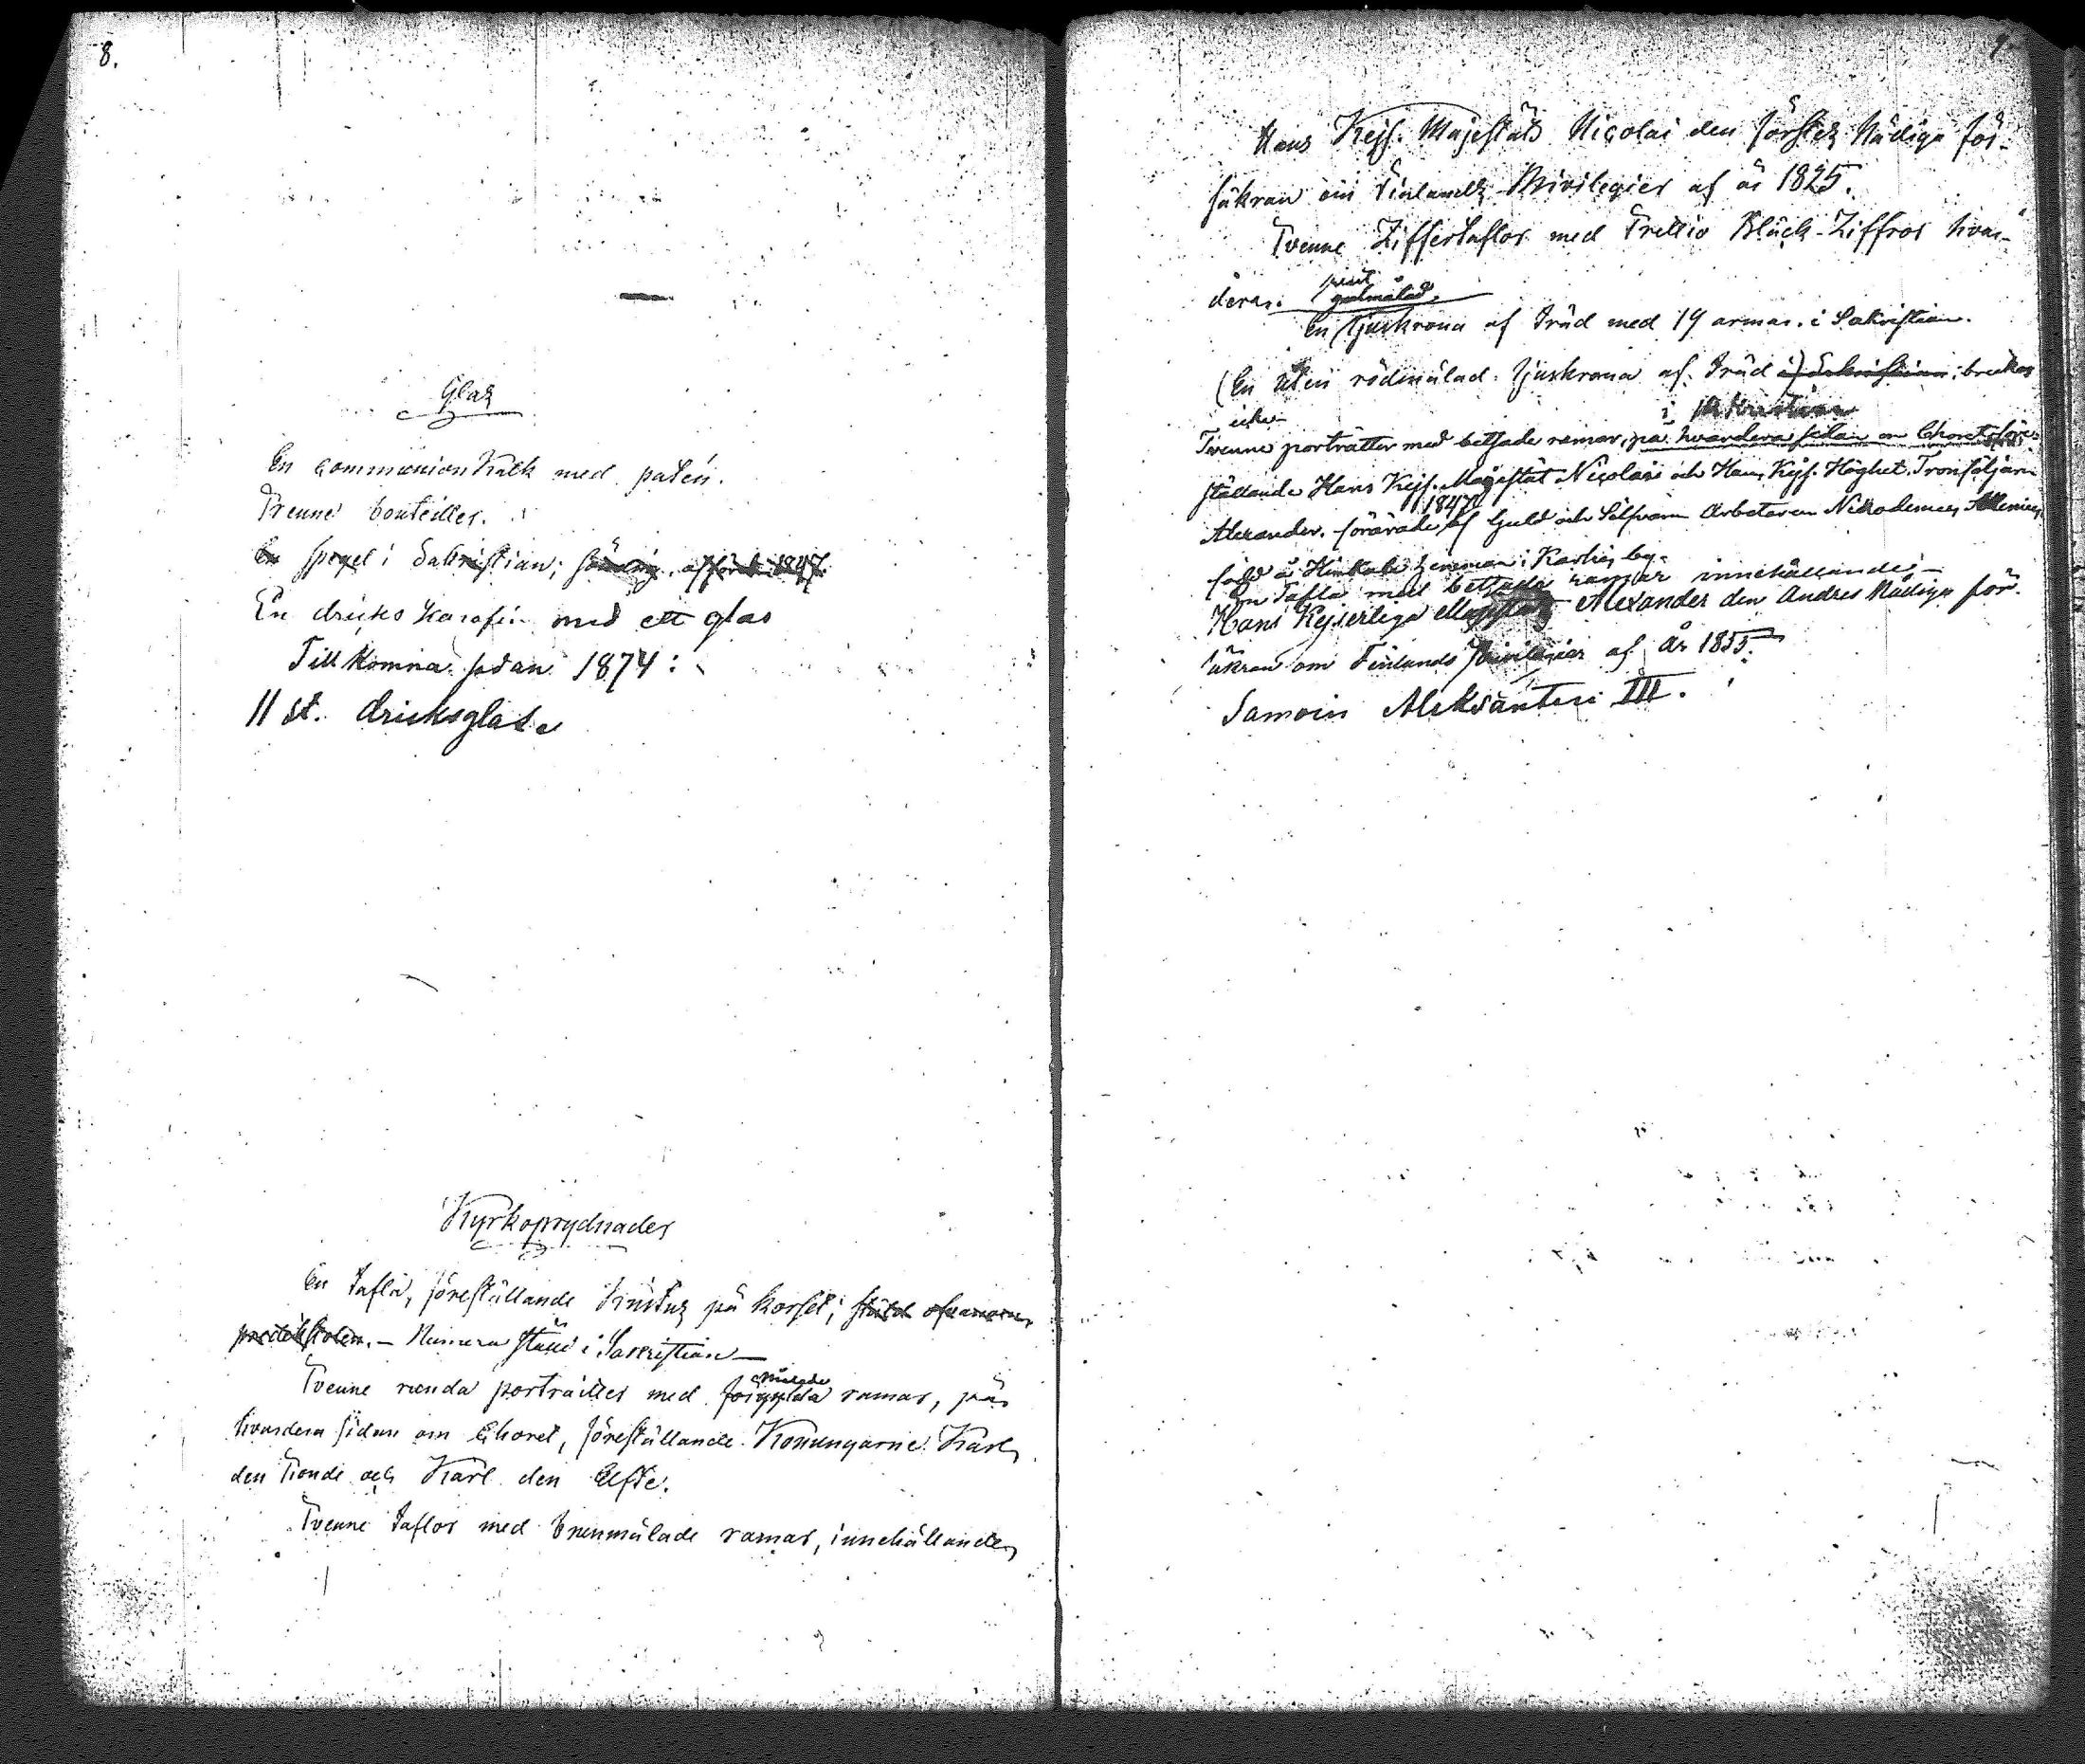 8.
Glas
En communion Kalk med patén.
Tvenne bouteiller.
En spegel i Sakristian; sönd
En dricks karafin med ett glas
Tillkomna sedan 1874:
11 st. dricksglas
Kyrkoprydnader
En tafla, föreställande Kristus på korset; stäld ofvanom
predikstolen. — Numera ställd i Sakristian —
målade
Tvenne runda portraiter med förgylda ramar, på
hvardera sidan om Choret, föreställande Konungarne Karl
den Tionde och Karl den Elfte.
Tvenne taflor med brunmålade ramar, innehållande
9.
Hans Kejs. Majestäts Nicolai den förstes Nådiga för-
säkran om Finlands Privilegier af år 1825.
Tvenne Ziffertaflor med Trettio Bläck-Ziffror hvar-
dera.
gulmålad
En ljuskrona af träd med 19 armar. i Sakristian.
(En liten rödmålad ljuskrona af träd i Sakristian; brukas
icke
i Sakristian
Tvenne porträtter med betsade ramar, på hvardera sidan om Choret, före-
ställande Hans Kejs. Majestät Nicolai och Hans Kejs. Höghet Tronföljaren
1847
Alexander. förärade af Guld och Silfvers Arbetaren Nikodemus
född å hemman i by.
En Tafla med betsade ramar innehållande
Hans Kejserliga Majestäts Alexander den Andres Nådiga för-
säkran om Finlands Privilegier af År 1855.
Samoin Aleksanteri III.